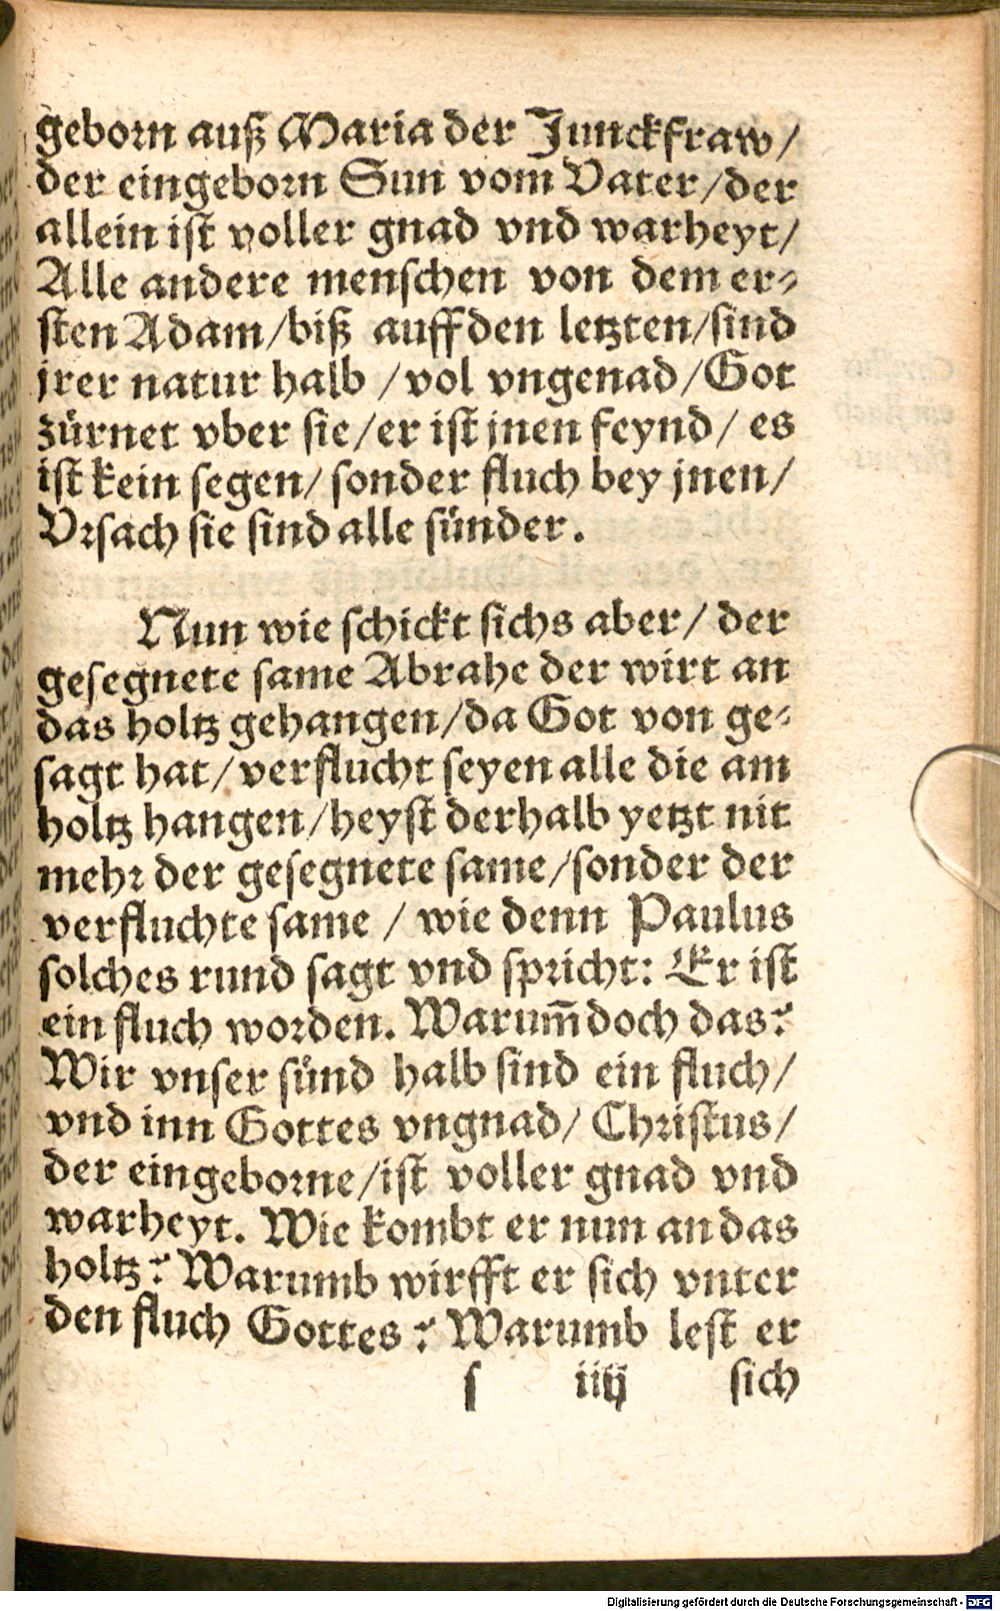 geborn auß Maria der Junckfraw/
der eingeborn Sun vom Vater/der
allein ist voller gnad vnd warheyt/
Alle andere menschen von dem er⸗
sten Adam/biß auff den letzten/sind
jrer natur halb /vol vngenad/Got
zürnet vber sie/er ist jnen feynd/ es
ist kein segen/ sonder fluch bey jnen/
Vrsach sie sind alle sünder.
Nun wie schickt sichs aber/ der
gesegnete same Abrahe der wirt an
das holtz gehangen/da Got von ge⸗
sagt hat/verflucht seyen alle die am
holtz hangen/heyst derhalb yetzt nit
mehr der gesegnete same/sonder der
verfluchte same / wie denn Paulus
solches rund sagt vnd spricht: Er ist
ein fluch worden. Warum̃ doch das?
Wir vnser sünd halb sind ein fluch/
vnd inn Gottes vngnad/ Christus/
der eingeborne/ist voller gnad vnd
warheyt. Wie kombt er nun an das
holtz? Warumb wirfft er sich vnter
den fluch Gottes? Warumb lest er
s iiij sich
Digitalisierung gefördert durch die Deutsche Forschungsgemeinschaft - DFG